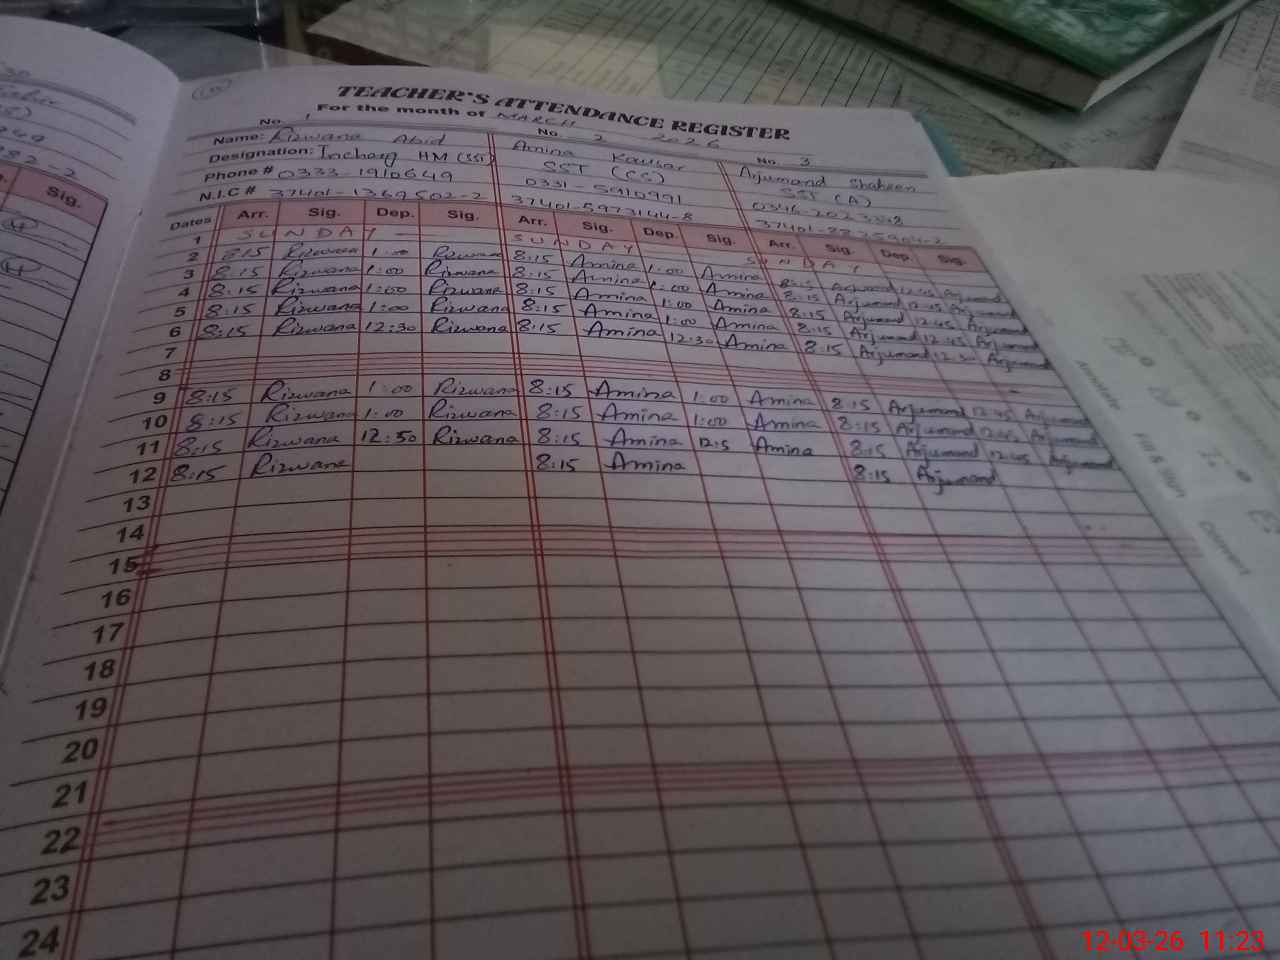 TEACHER'S ATTENDANCE REGISTER
For the month of MARCH 2026
No. 1 No. 2 No. 3
Name: Rizwana Abid Amina Kausar Arjumand Shaheen
Designation: Incharg HM (SST) SST (CS) SST (A)
Phone # 0333-1910649 0331-5910991
N.I.C # 37401-1369502-2 37401-5973144-8
Dates Arr. Sig. Dep. Sig. Arr. Sig. Dep. Sig. Arr. Sig. Dep. Sig.
1 SUNDAY SUNDAY SUNDAY
2 8:15 Rizwana 1:00 Rizwana 8:15 Amina 1:00 Amina 8:15 Arjumand 12:45 Arjumand
3 8:15 Rizwana 1:00 Rizwana 8:15 Amina 1:00 Amina 8:15 Arjumand 12:45 Arjumand
4 8:15 Rizwana 1:00 Rizwana 8:15 Amina 1:00 Amina 8:15 Arjumand 12:45 Arjumand
5 8:15 Rizwana 1:00 Rizwana 8:15 Amina 1:00 Amina 8:15 Arjumand 12:45 Arjumand
6 8:15 Rizwana 12:30 Rizwana 8:15 Amina 12:30 Amina 8:15 Arjumand 12:30 Arjumand
7
8
9 8:15 Rizwana 1:00 Rizwana 8:15 Amina 1:00 Amina 8:15 Arjumand 12:45 Arjumand
10 8:15 Rizwana 1:00 Rizwana 8:15 Amina 1:00 Amina 8:15 Arjumand 12:45 Arjumand
11 8:15 Rizwana 12:50 Rizwana 8:15 Amina 12:5 Amina 8:15 Arjumand 12:45 Arjumand
12 8:15 Rizwana 8:15 Amina 8:15 Arjumand
13
14
15
16
17
18
19
20
21
22
23
24
Sig.
Annotate
Fill & Sign
Convert
12-03-26 11:23